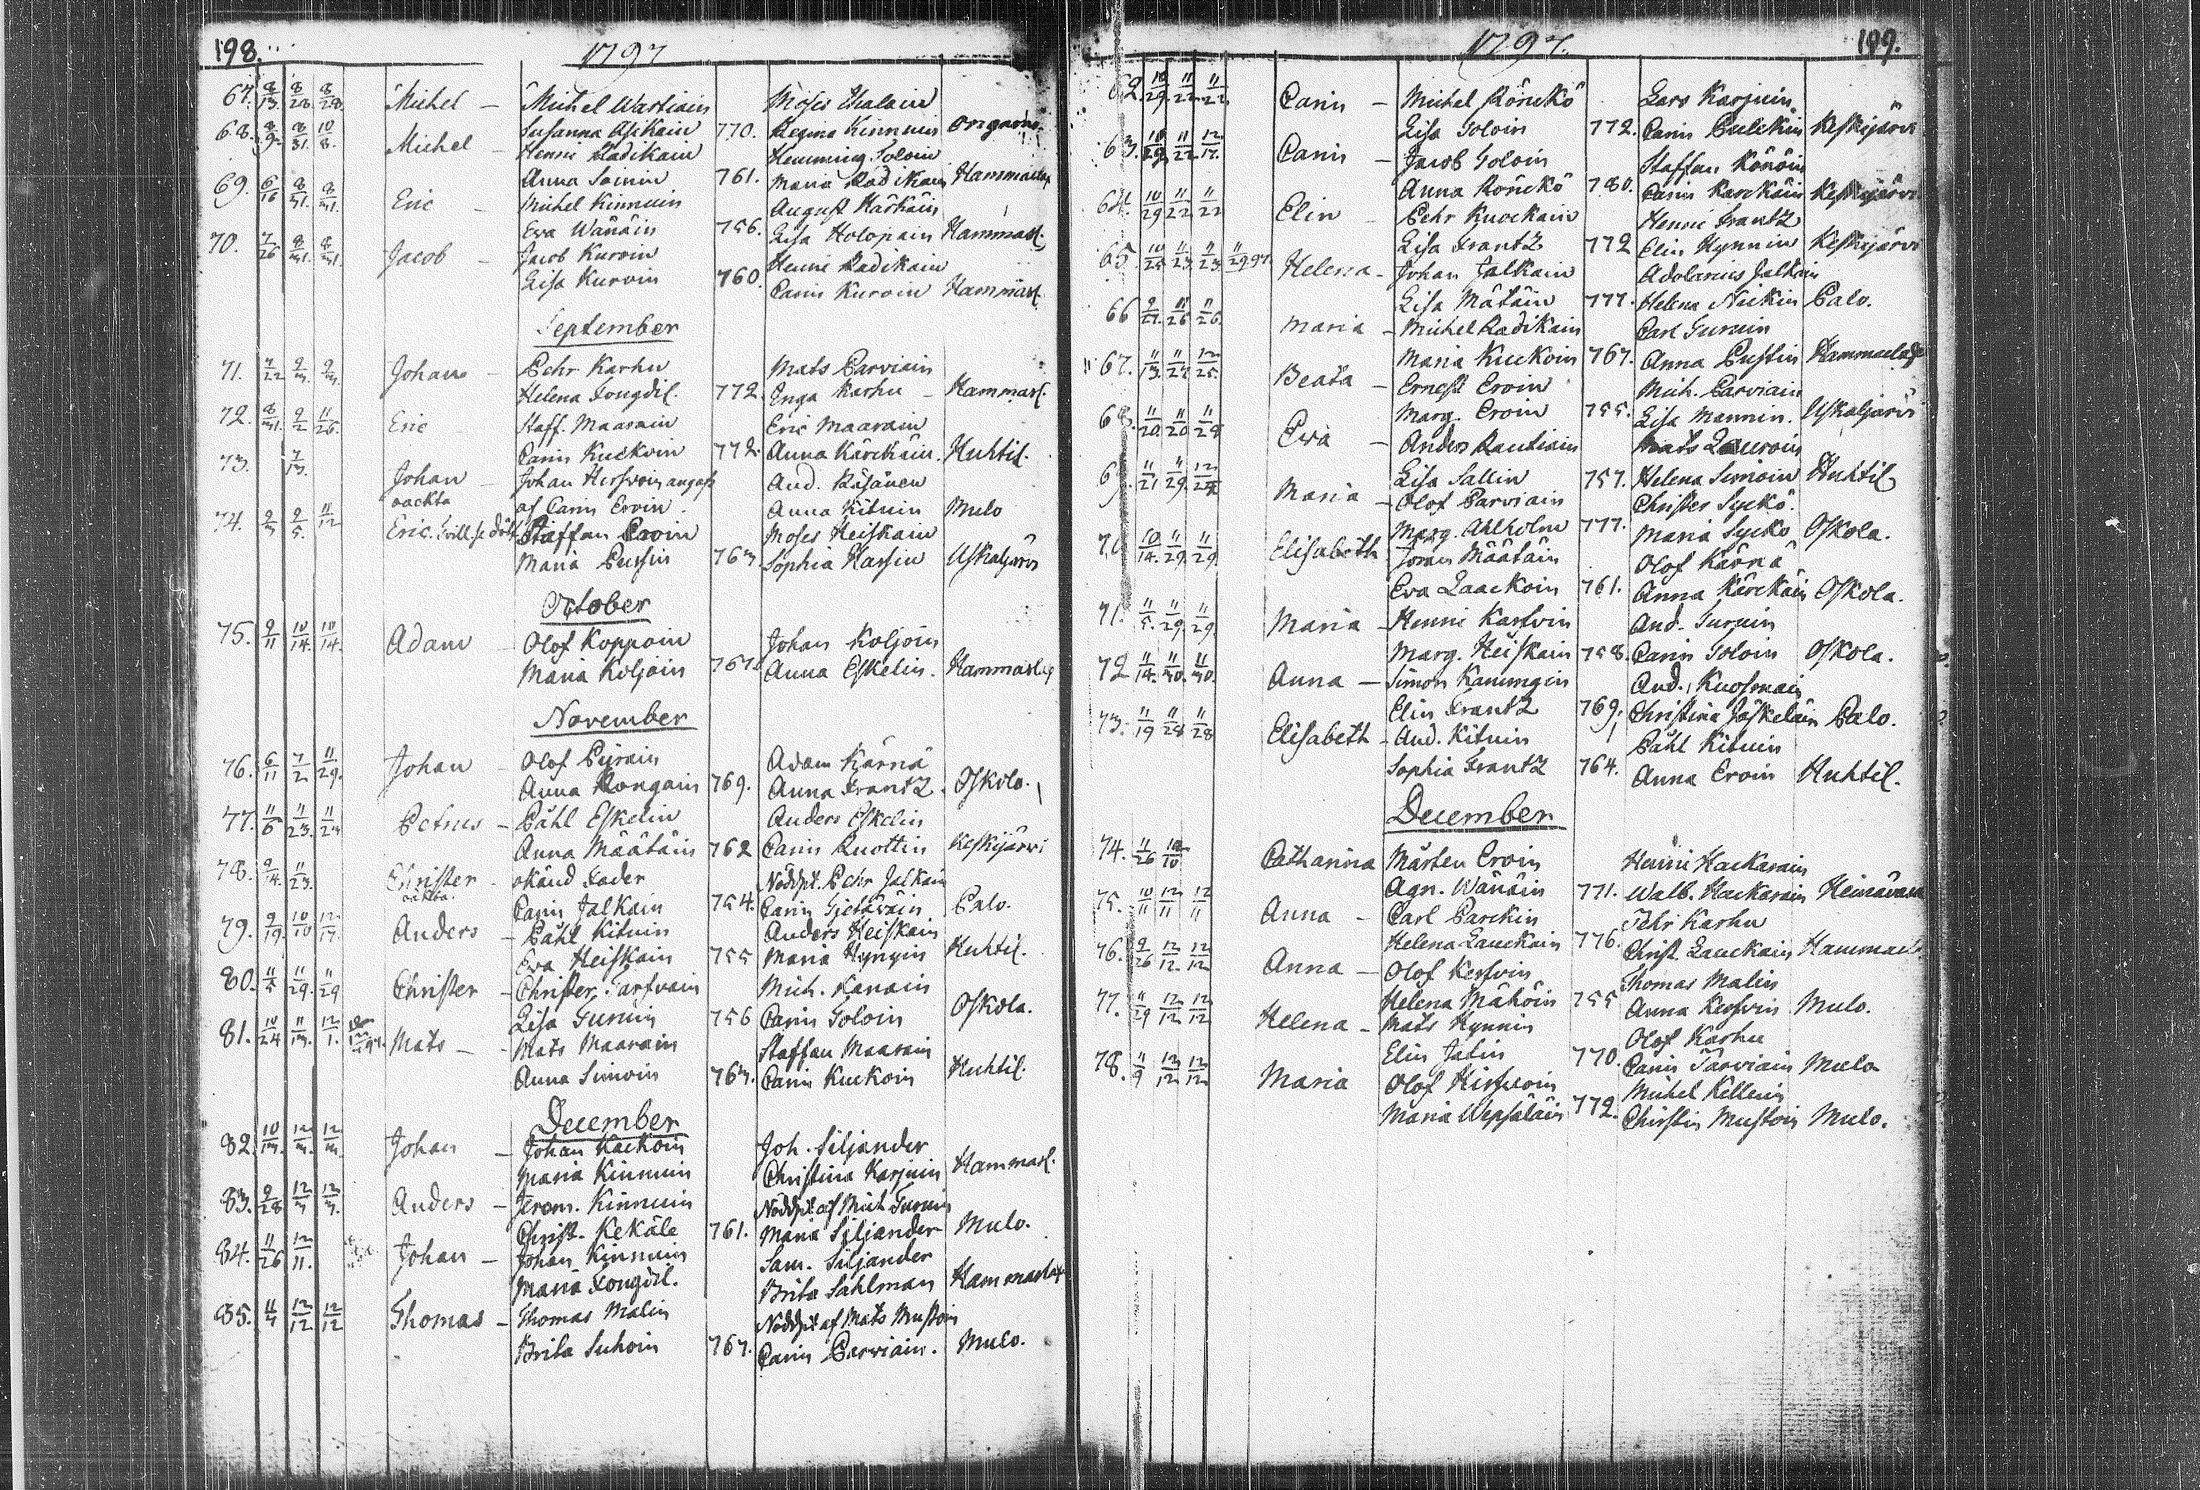 198.
1797
67. 8/13. 8/28. 8/28. Michel — Michel Wartiain Moses Ihalain
Susanna Asikain 770. Regina Kinnuin
68. 8/9. 8/31. 10/8. Michel — Henric Radikain Hemming Toloin
Anna Soinin 761. Maria Radikain Hammaslax
69. 6/16 8/31. 8/31. Eric — Michel Kinnuin August Härkäin
Eva Wänäin 756. Lisa Holopain Hammasl.
70. 7/26 8/31. 8/31. Jacob — Jacob Kurvin Henric Radikain
Lisa Kurvin 760. Carin Kurvin Hammasl.
September
71. 7/22 9/3. 9/3. Johan — Pehr Karhu Mats Parviain
Helena Longdil. 772. Inga Karhu — Hammasl.
72. 8/31. 9/2 11/26. Eric Staff. Maarain Eric Maarain
Carin Kuckoin 772. Anna Kärckäin. Huhtil.
73. 7/13. Johan — Johan Hirfvoin angafs And. Räsänen
oackta af Carin Ervin. Anna Kituin Mulo
74. 9/3 9/5. 11/12 Eric. Staffan Ervin Moses Heiskain
Maria Pussin 763. Sophia Hassin Uskaljärvi
October
75. 9/11 10/14. 10/14. Adam — Olof Koppoin Johan Koljoin
Maria Koljoin 767. Anna Eskelin. Hammaslax
November
76. 6/11 7/2 11/29. Johan — Olof Pijrain Adam Kärnä
Anna Rongain 769. Anna Frantz. Oskola.
77. 11/6 11/23. 11/23 Petrus — Påhl Eskelin Anders Eskelin
Anna Määtäin 762 Carin Ruottin Keskijärvi
78. 9/14. 11/23. Christer — okänd Fader Nöddpt. Pehr Jalkain
oäckta. Carin Jalkain 754. Carin Gjetäväin Palo.
79. 9/19. 10/10 12/17. Anders — Påhl Kituin Anders Heiskain
Eva Heiskain 755 Maria Hyngin Huhtil.
80. 11/5 11/29. 11/29 Christer — Christer Tarfvain Mich. Kanain
Lisa Turuin 756 Carin Toloin Oskola.
81. 10/24 11/13. 12/1. Mats — Mats Maarain Staffan Maarain
Anna Simoin 763. Carin Kuckoin Huhtil.
December
82. 10/13. 12/3. 12/3. Johan — Johan Kackoin Joh. Siljander
Maria Kinnuin Christina Karjuin Hammasl.
83. 9/28 12/3 12/3. Anders — Jerom. Kinnuin Nöddpt af Mich Turuin
Christ. Kekäle 761. Maria Siljander Mulo.
84. 11/26 12/11. Johan — Johan Kinnuin Sam. Siljander
Maria Longdil. Brita Sahlman Hammaslax
85. 11/4 12/12 12/12 Thomas — Thomas Malin Nöddpt af Mats Mustoin
Brita Suhoin 767. Carin Parviain. Mulo.
1797.
199.
62. 10/29. 11/22. 11/22 Carin — Michel Rönckö Lars Karjuin
Lisa Toloin 772. Carin Pulckin Keskijärvi
63. 10/29. 11/22. 12/17. Carin — Jacob Toloin Staffan Könöin
Anna Rönckö 780. Carin Karckäin Keskijärvi
64. 10/29 11/22 11/22 Elin — Pehr Kuockain Henric Frantz
Lisa Frantz 772 Elin Hynnin Keskijärvi
65. 10/25 11/23. 11/23. 11/29 97. Helena — Johan Jalkain Adolarius Jalkain
Lisa Mätäin 777. Helena Nickin Palo.
66 9/27. 11/26 11/26. Maria — Michel Radikain Carl Turuin
Maria Kuckoin 767. Anna Pustin Hammaslax
67. 11/13. 11/27 12/25. Beata — Ernest Ervin Mich. Parviain
Marg. Ervin 755. Lisa Mannin. Uskaljärvi
68. 11/20. 11/20 11/28 Eva — Anders Rautiain Mats Lauroin
Lisa Sallin 757. Helena Simoin Huhtil
69. 11/21 11/29. 12/27 Maria — Olof Parviain Christer Syckö.
Marg. Ahlholm 777. Maria Sycko Oskola.
70 10/14. 11/29. 11/29. Elisabeth Jöran Määtäin Olof Kärnä
Eva Laackoin 761. Anna Kärckäin Oskola.
71. 11/5. 11/29. 11/29. Maria — Henric Karfvin And. Turuin
Marg. Heiskain 758. Carin Toloin Oskola.
72 11/14. 11/30. 11/30. Anna — Simon Kaningin And. Kuosmain
Elin Frantz 769. Christina Jäskeläin Palo.
73. 11/19 11/28 11/28 Elisabeth — And. Kituin Påhl Kituin
Sophia Frantz 764. Anna Ervin Huhtil.
December
74. 11/26 12/10 Catharina Mårten Ervin Henric Hackarain
Agn. Wänäin 771. Walb. Hackarain Heinävaara
75. 10/11 12/11 12/11 Anna — Carl Parckin Pehr Karhu
Helena Lauckain 776. Christ. Lauckain Hammasl.
76. 9/26 12/12. 12/12 Anna — Olof Kerfvin Thomas Malin
Helena Mähöin 755 Anna Kerfvin Mulo.
77. 11/29 12/12 12/12 Helena — Mats Hynnin Olof Karhu
Elin Jätin 770. Carin Tarviain Mulo
78. 11/9 12/12 12/12 Maria Olof Hirfvoin Michel Kellein
Maria Wepsäläin 772. Christin Mustoin Mulo.